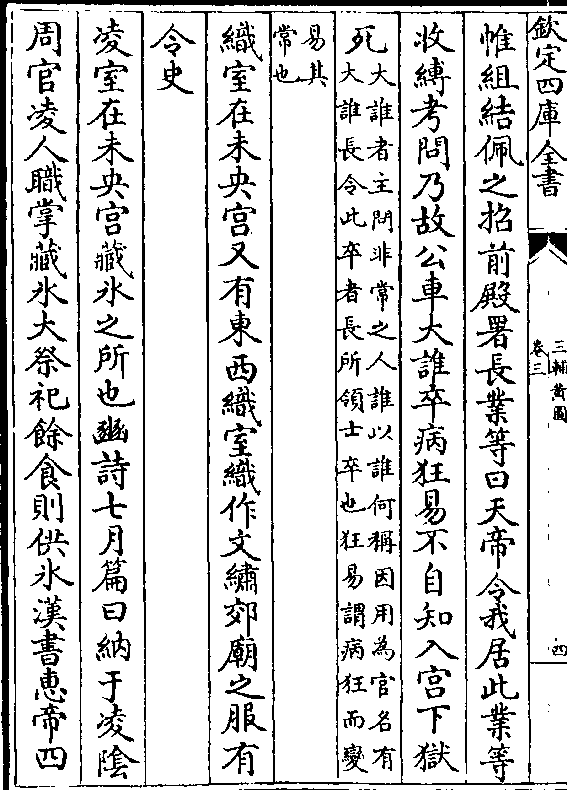 欽定四庫全書
三輔黄圖
卷三
四
帷組結佩之招前殿署長業等曰天帝令我居此業等
收縛考問乃故公車大誰卒病狂易不自知入宫下獄
死
大誰者主問非常之人誰以誰何稱因用為官名有
大誰長令此卒者長所領士卒也狂易謂病狂而變
易其
常也
織室在未央宫又有東西織室織作文繡郊廟之服有
令史
凌室在未央宫藏氷之所也豳詩七月篇曰納于凌隂
周官凌人職掌藏氷大祭祀餘食則供氷漢書惠帝四